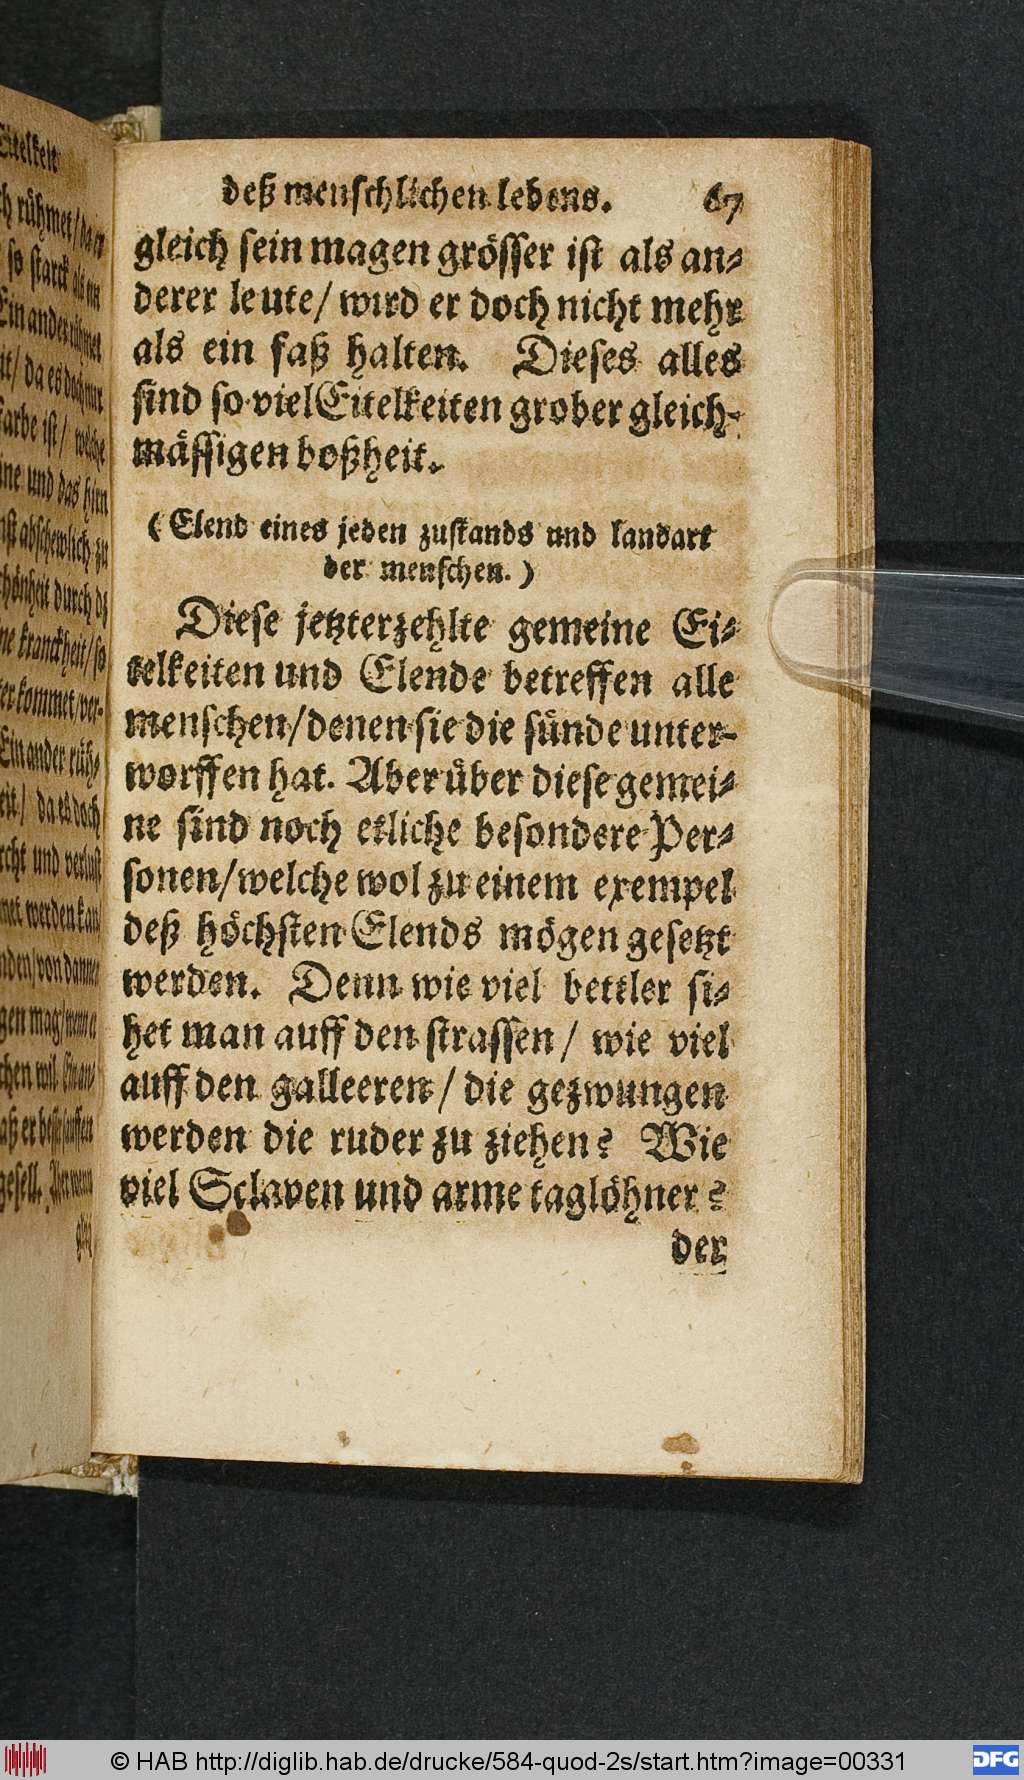 Eitelkeit
rühmet / da er
so starck als ein
Ein ander rühmet
da es doch nur
farbe ist / welche
und das hirn
ist abschewlich zu
schönheit durch dz
kranckheit / so
kommet / ver-
Ein ander rüh-
da es doch
und verlust
werden kan /
von dannen
mag / wenn
wil.
er
gesell. Aber wenn
gleich
deß menschlichen lebens. 67
gleich sein magen grösser ist als an-
derer leute / wird er doch nicht mehr
als ein faß halten. Dieses alles
sind so viel Eitelkeiten grober gleich-
mässigen boßheit.
( Elend eines jeden zustands und landart
der menschen. )
Diese jetzterzehlte gemeine Ei-
telkeiten und Elende betreffen alle
menschen / denen sie die sünde unter-
worffen hat. Aber über diese gemei-
ne sind noch etliche besondere Per-
sonen / welche wol zu einem exempel
deß höchsten Elends mögen gesetzt
werden. Denn wie viel bettler si-
het man auff den strassen / wie viel
auff den galleeren / die gezwungen
werden die ruder zu ziehen? Wie
viel Sclaven und arme taglöhner?
der
© HAB http://diglib.hab.de/drucke/584-quod-2s/start.htm?image=00331
DFG